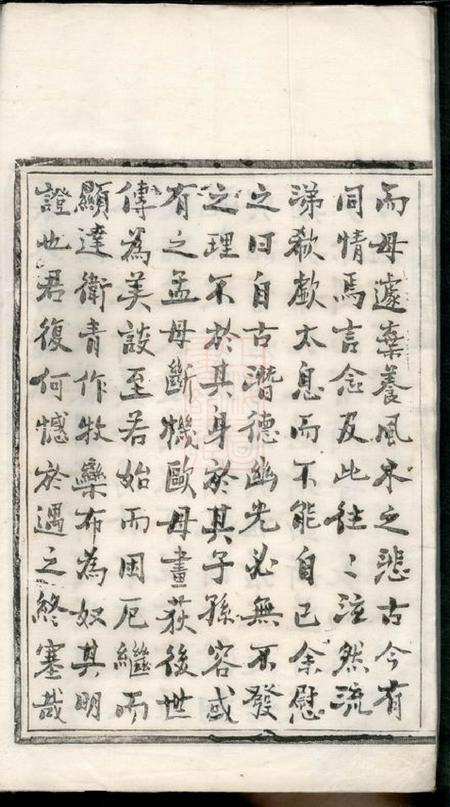 而母遽棄養風木之悲古今有
同情焉言念及此往〻泫然流
涕欷歔太息而不能自已余慰
之曰自古潛德幽光必無不發
之理不於其身於其子孫容或
有之孟母斷機歐母畫荻後世
傳為美談至若始而困厄繼而
顯達衛青作牧欒布為奴其明
證也君復何憾於遇之終塞哉